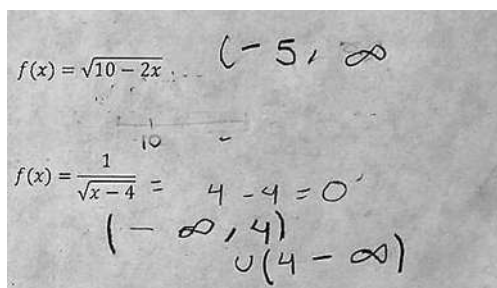 f(x) = √(10 − 2x) (- 5, ∞
10 -
f(x) = 1/√(x − 4) = 4 - 4 = 0
(- ∞, 4)
∪(4 - ∞)